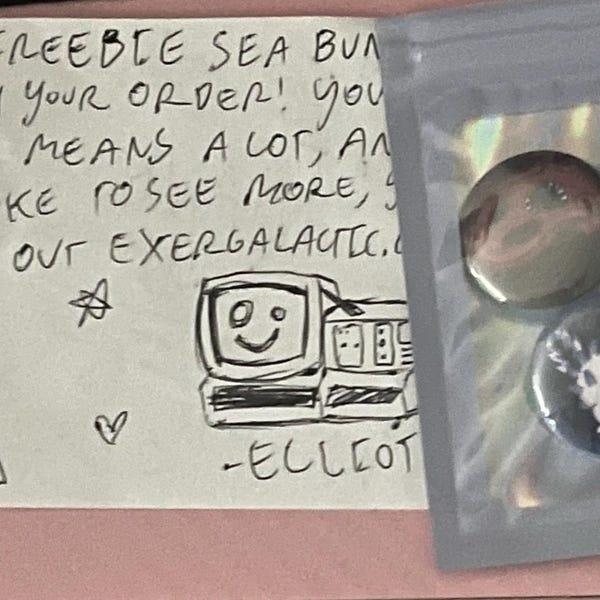 FREEBIE SEA BUN
YOUR ORDER! YOU
MEANS A LOT, AN
KE TO SEE MORE,
OUT EXERGALACTIC.
-ELLIOT